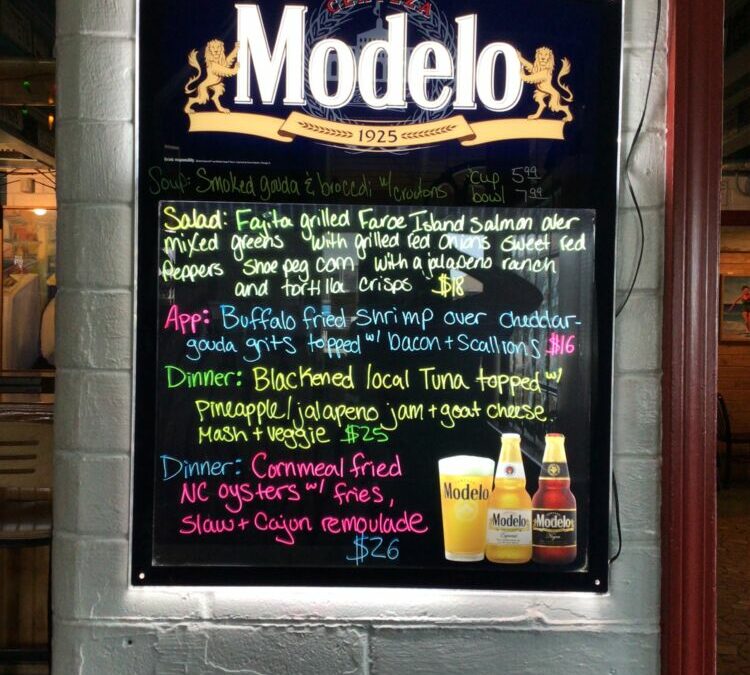 CERVEZA
Modelo
1925
Drink responsibly.
Soup: Smoked gouda & broccoli w/croutons cup 5.99
bowl 7.99
Salad: Fajita grilled Faroe Island Salmon over
mixed greens with grilled red onions sweet red
Peppers shoe peg corn with a jalapeno ranch
and tortilla crisps $18
App: Buffalo fried shrimp over cheddar-
gouda grits topped w/ bacon + Scallions $16
Dinner: Blackened local Tuna topped w/
pineapple/jalapeno jam + goat cheese.
Mash + veggie $25
Dinner: Cornmeal fried
NC oysters w/ fries,
Slaw + Cajun remoulade
$26
Modelo
Modelo
Especial
Modelo
Negra